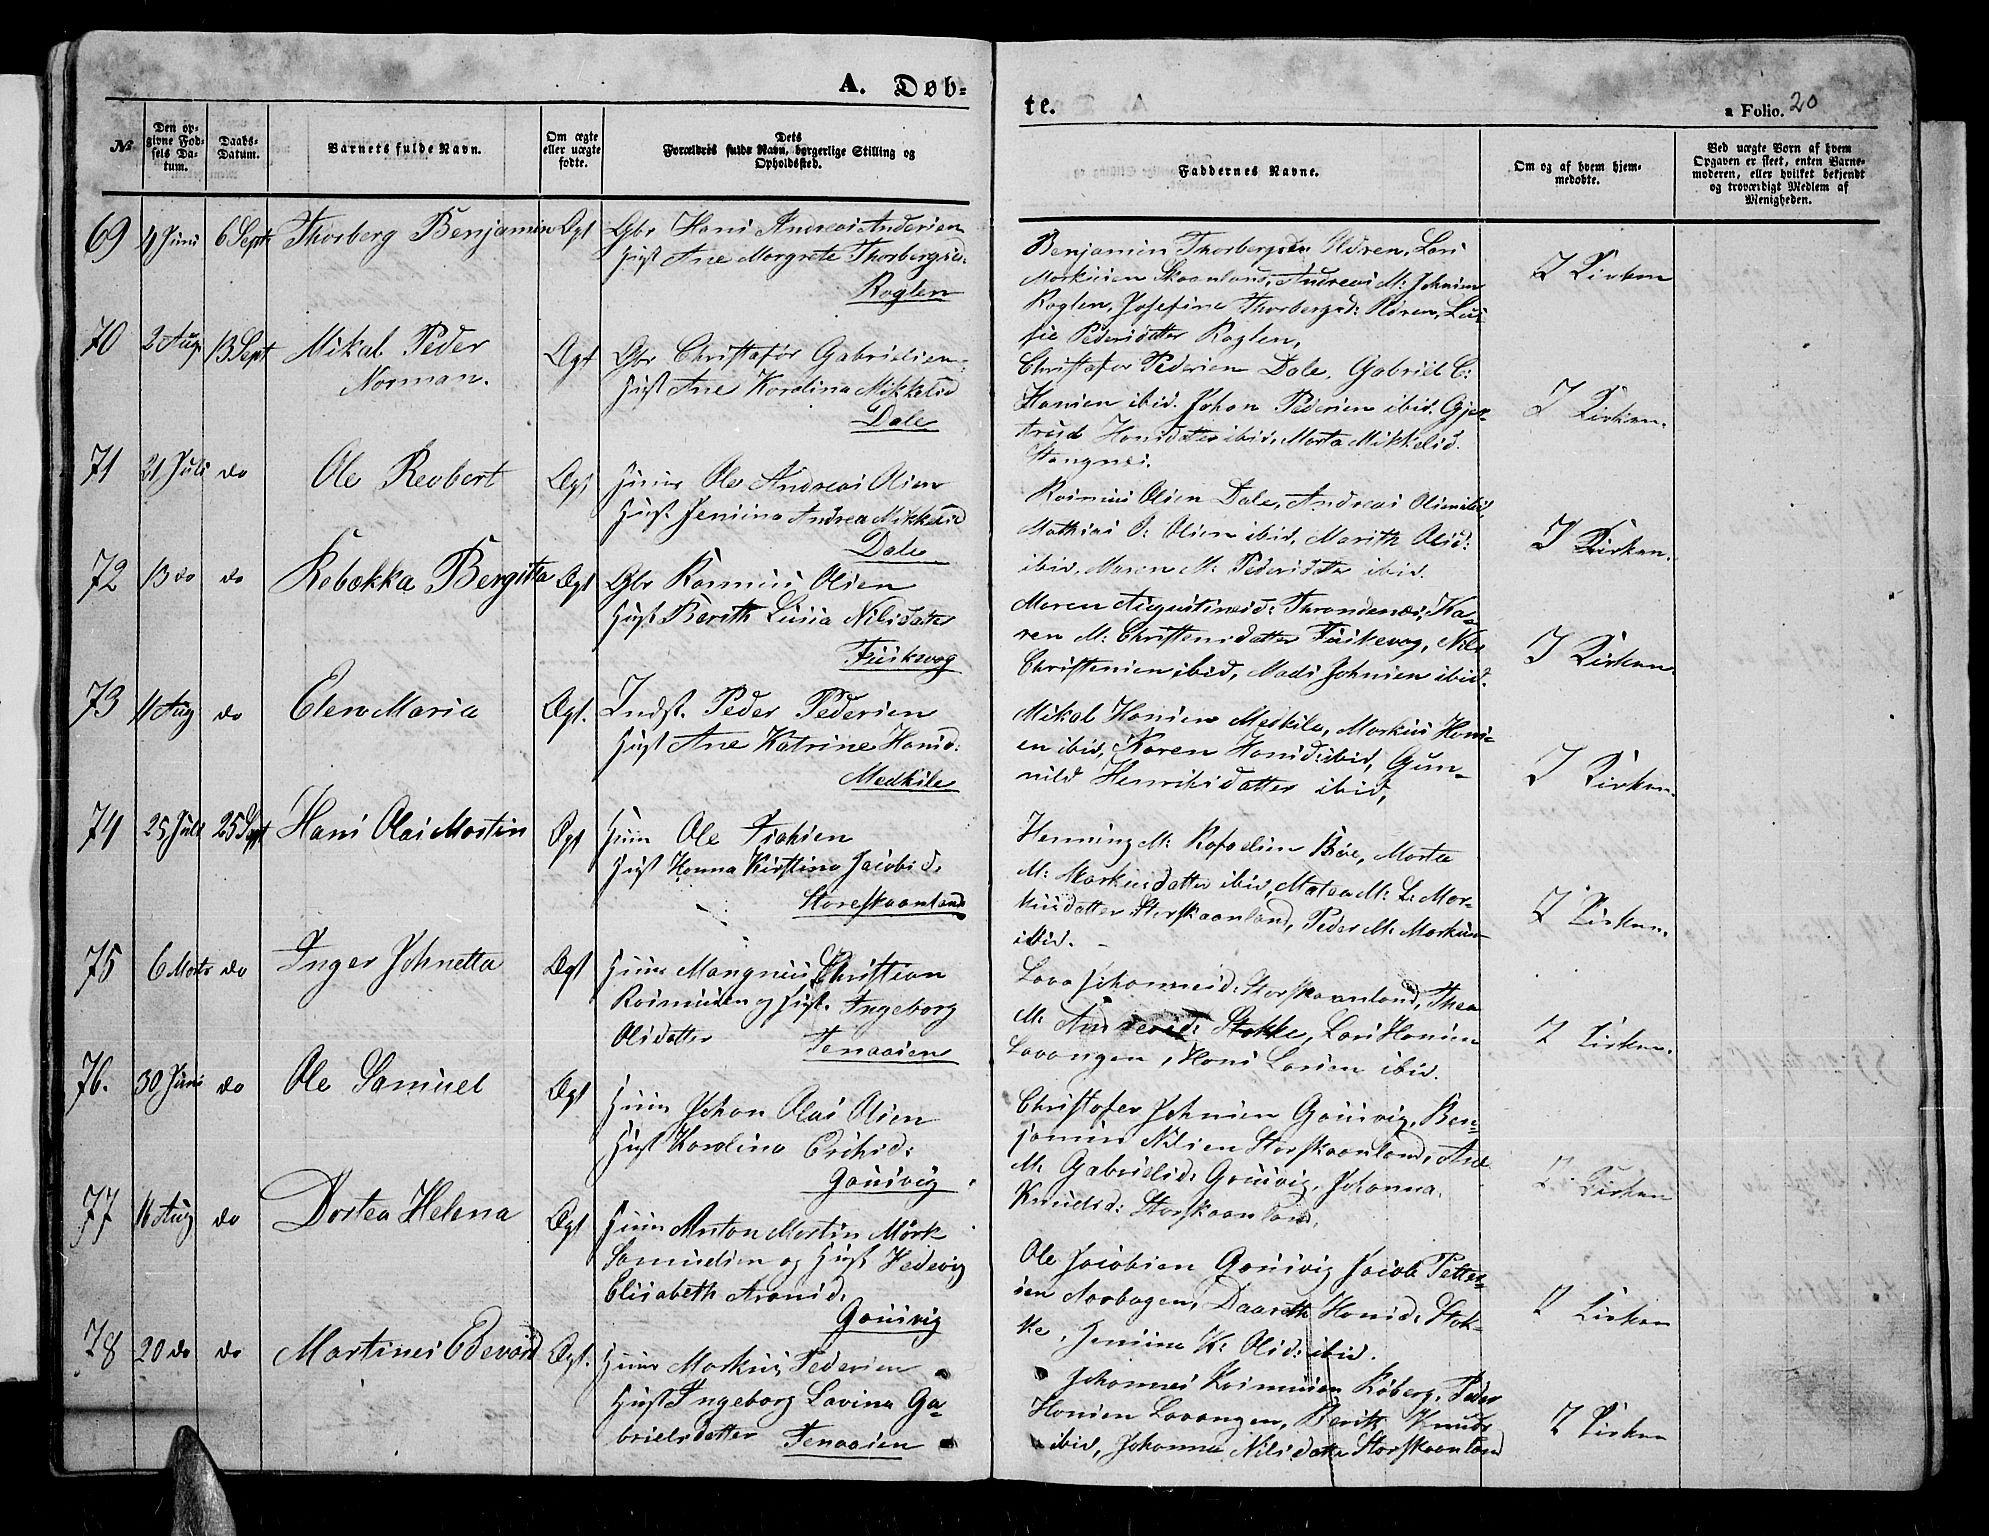 A. Døb-
te.
a Folio. 20
No
Den op-
givne Fød-
sels Da-
tum.
Daabs-
Datum.
Barnets fulde Navn.
Om ægte
eller uægte
fødte.
Dets
Forældres fulde Navn, borgerlige Stilling og
Opholdssted.
Faddernes Navne.
Om og af hvem hjem-
medøbte.
Ved uægte Born af hvem
Opgaven er skeet, enten Barne-
moderen, eller hvilket bekjendt
og troværdigt Medlem af
Menigheden.
69 4 Juni 6 Sept Thorberg Benjamin Ægt
Gbr Hans Andreas Andersen
Hust Ane Margrete Thorbergsd:
Roglen
Benjamin Thorbergsen Renen, Lars
Markusen Skaanland, Andreas M: Johnsen
Roglen, Josefine Thorbergsd: Renen, Lui-
sie Pedersdatter Roglen,
I Kirken
70 2 Aug 13 Sept Mikal Peder
Norman.
Ægt
Gbr Christofer Gabrielsen
Hust Ane Karolina Mikkelsd
Dale
Christofer Pedersen Dale, Gabriel C:
Hansen ibid. Johan Pedersen ibid. Gjer-
trud Hansdatter ibid, Marta Mikkelsd.
Stangnes.
I Kirken.
71 21 Juli do Ole Reobert Ægt
Huusm Ole Andreas Olsen
Hust. Jensina Andrea Mikkelsd
Dale
Rasmus Olsen Dale, Andreas Olsen ibid,
Mathias O: Olsen ibid, Marith Olsd:
ibid, Maren M: Pedersdatter ibid.
I Kirken.
72 13 do do Rebækka Bergitta Ægt
Gbr Rasmus Olsen
Hust Berith Luisa Nilsdatter
Fuskevog
Maren Augustinusd: Throndenæs, Ka-
ren M: Christensdatter Fuskevog, Nils
Christensen ibid, Mads Johnsen ibid.
I Kirken.
73 11 Aug do Elen Maria Ægt.
Indst. Peder Pedersen
Hust Ane Katrine Hansd:
Medkile
Mikal Hansen Medkile, Markus Hans-
en ibid, Karen Hansd: ibid, Gun-
nild Henriksdatter ibid,
I Kirken.
74 25 Juli 25 Sept Hans Olai Martin Ægt
Huusm Ole Isaksen
Hust Hanna Kirstina Jacobsd.
Storeskaanland
Henning M: Rafaelsen Böe, Marta
M: Markusdatter ibid, Matea M: L: Mar-
kusdatter Storskaanland, Peder M: Markusen
ibid.
I Kirken.
75 6 Marts do Inger Johnetta Ægt
Huusm Mangnus Christian
Rasmusen og Hust. Ingeborg
Olsdatter Tenaasen
Lava Johannesd: Storskaanland, Thea
M: Andersd: Stokke, Lars Hansen
Lavangen, Hans Larsen ibid.
I Kirken.
76. 30 Juni do Ole Samuel Ægt
Huusm Johan Olai Olsen
Hust Karolina Eriksd:
Gausvig
Christofer Johnsen Gausvig, Ben-
jamin Nilsen Storskaanland, Ane
M: Gabrielsd: Gausvig, Johanna
Knudsd: Storskaanland.
I Kirken
77 16 Aug do Dortea Helena Ægt
Huusm Anton Martin Mörk
Samuelsen og Hust Hedevig
Elisabeth Aronsd.
Gausvig
Ole Jacobsen Gausvig Jacob Petter-
sen Aarbogen, Daareth Hansd: Stok-
ke, Jensina K: Olsd: ibid.
I Kirken
78 20 do do Martines Edevard Ægt.
Huusm Markus Pedersen
Hust Ingeborg Lavina Ga-
brielsdatter Tenaasen
Johannes Rasmusen Röberg, Peder
Hansen Lavangen, Berith Knuds
ibid, Johanna Nilsdatter Storskaanland
I Kirken